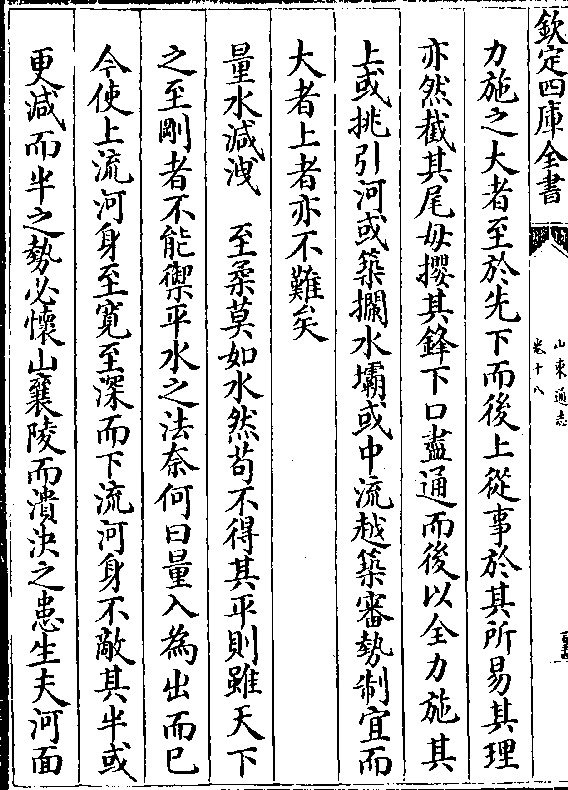 欽定四庫全書
山東通志
卷十八
力施之大者至於先下而後上從事於其所易其理
亦然截其尾毋攖其鋒下口盡通而後以全力施其
上或挑引河或築攔水壩或中流越築審勢制宜而
大者上者亦不難矣
量水減洩　至柔莫如水然苟不得其平則雖天下
之至剛者不能禦平水之法奈何曰量入為出而已
今使上流河身至寛至深而下流河身不敵其半或
更減而半之勢必懷山襄陵而潰決之患生夫河面